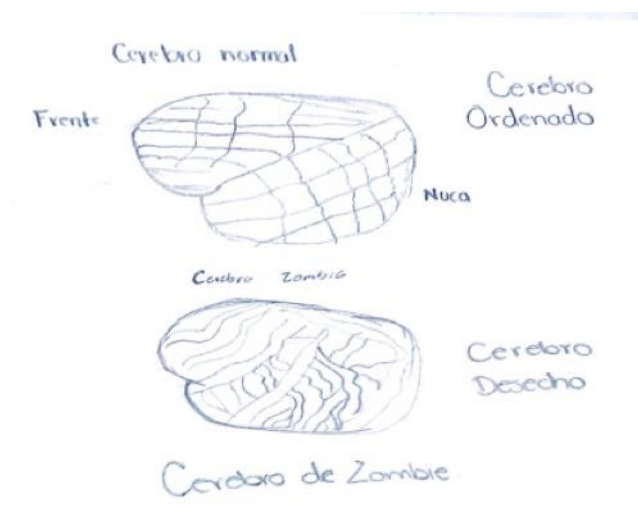 Cerebro normal
Frente
Cerebro
Ordenado
Nuca
Cerebro Zombie
Cerebro
Desecho
Cerebro de Zombie